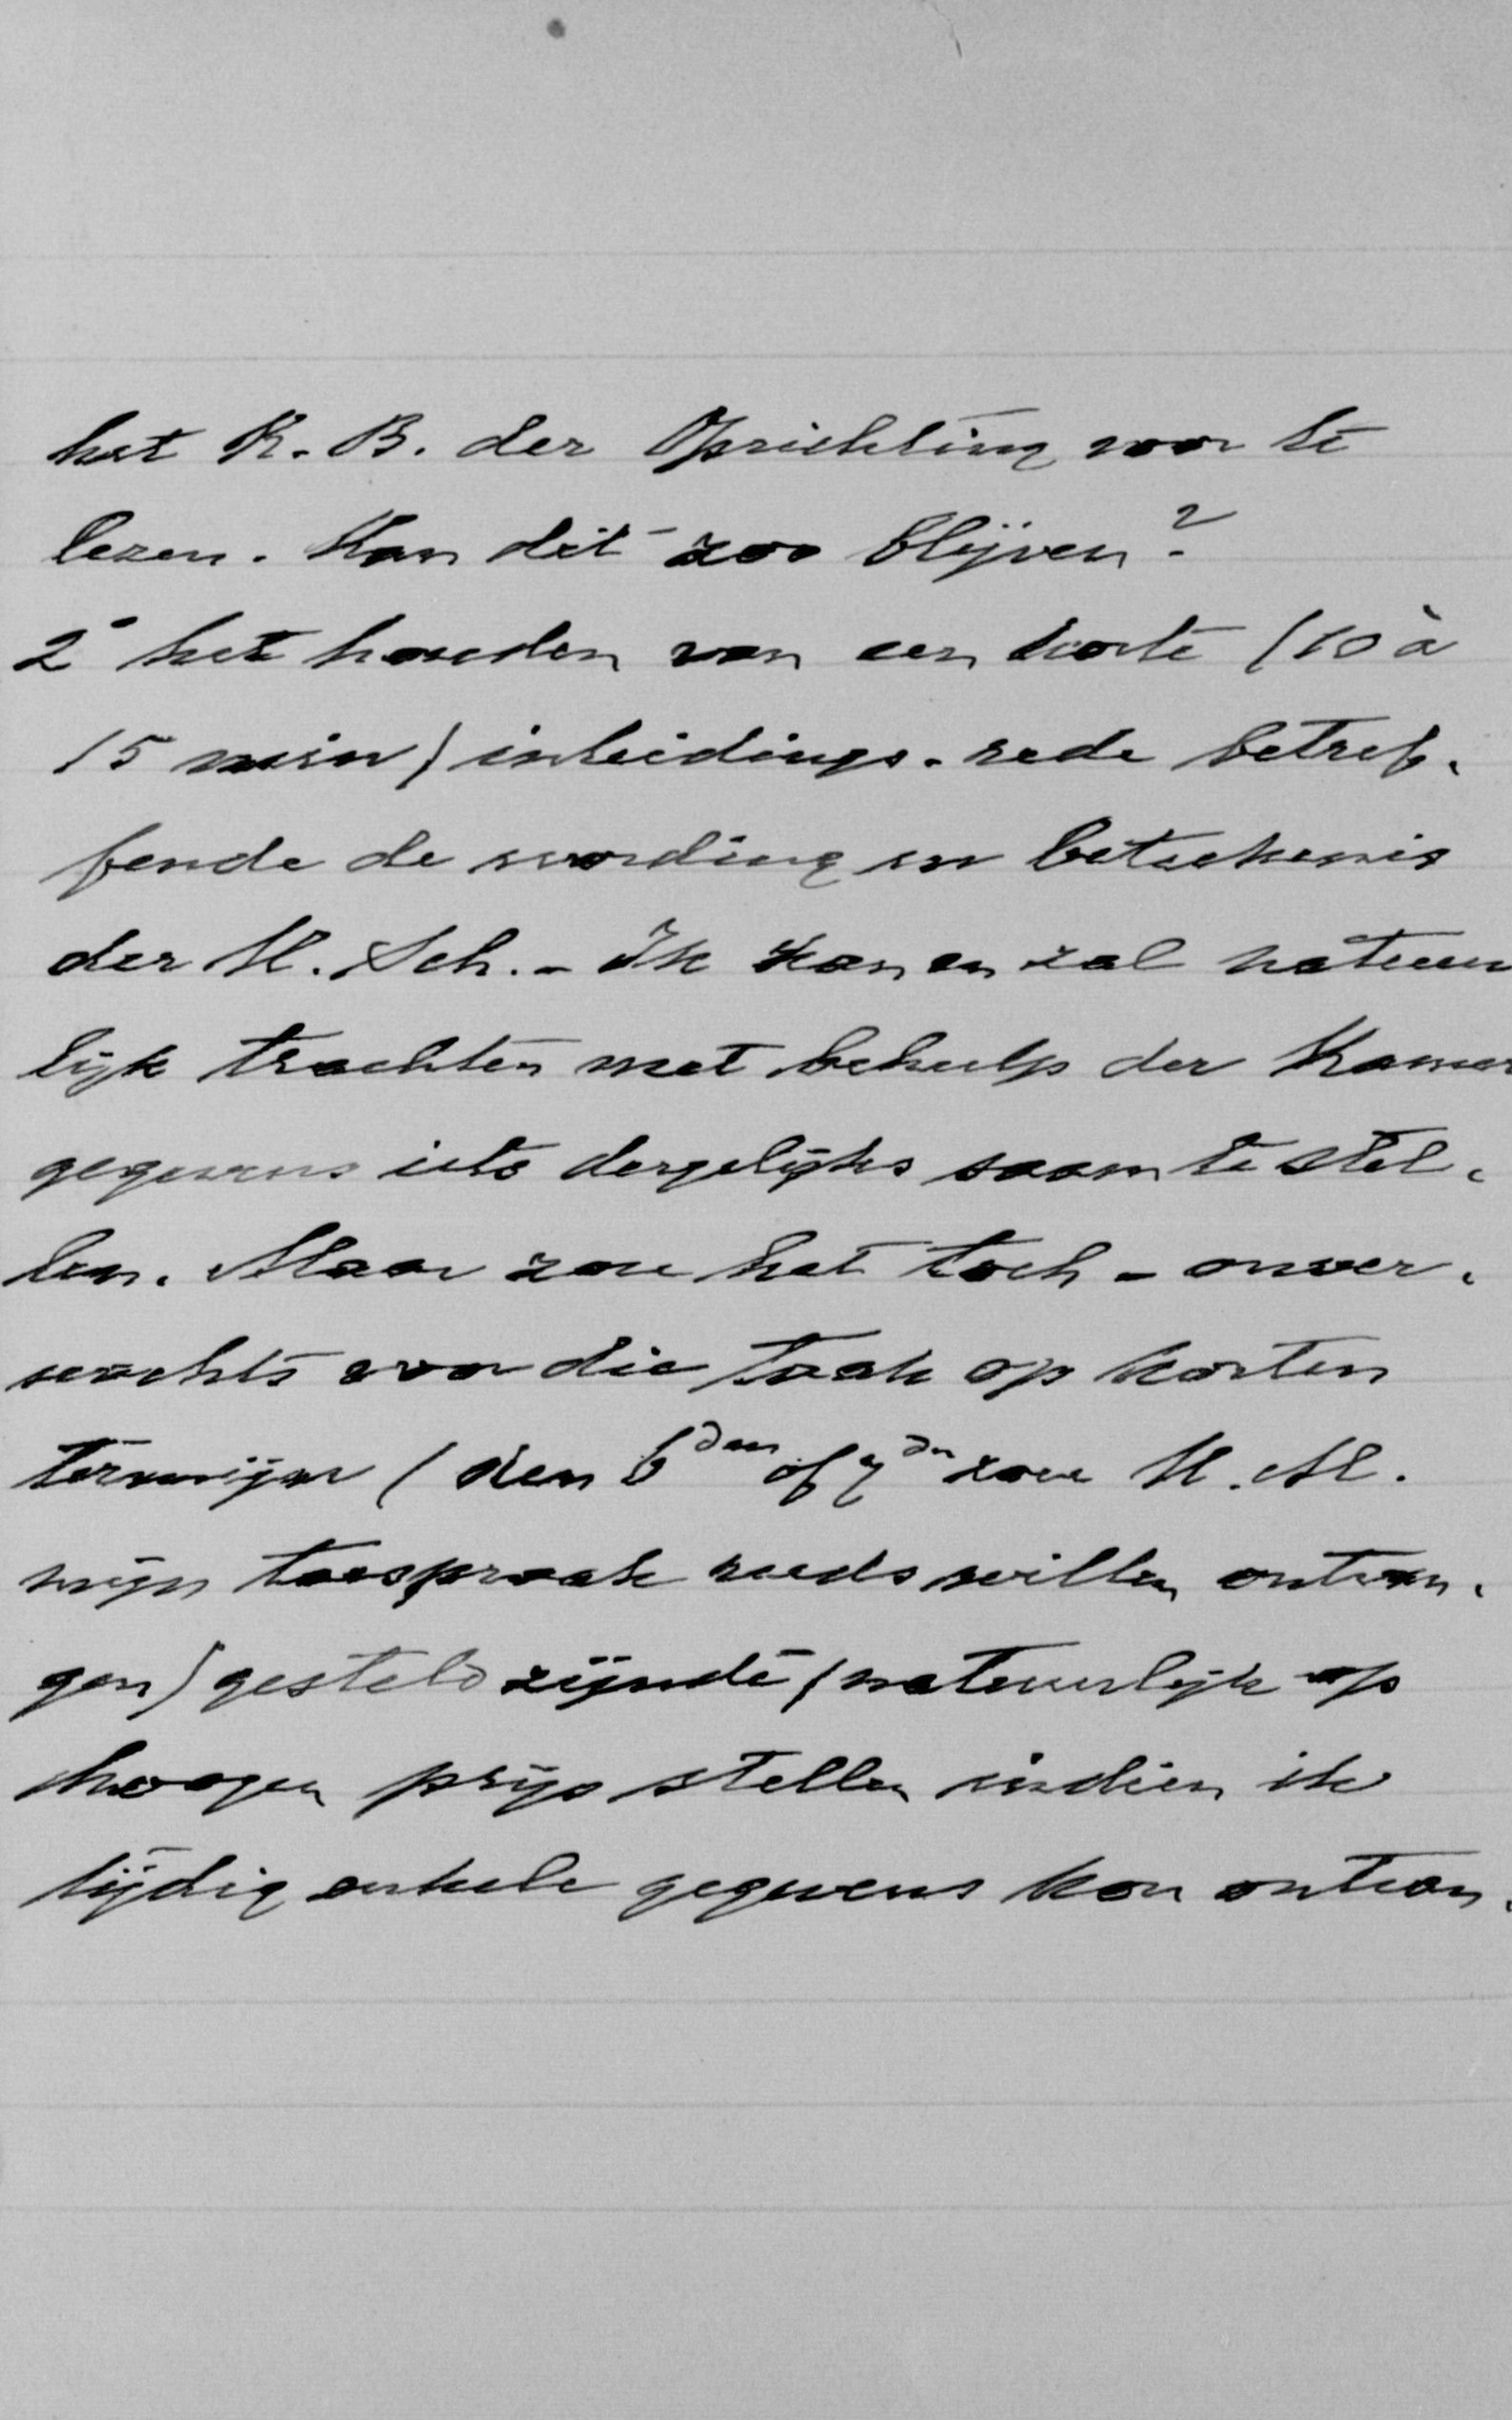 het K.B. der Oprichting voor te
lezen. Kan dit zoo blijven?
2° het houden van een korte (10 à
15 min) inleidings-rede betref-
fende de wording en beteekenis
der H. Sch. - Ik kan en zal natuur
lijk trachten met behulp der Kamer
gegevens iets dergelijks saam te stel-
len. Maar zou het toch - onver-
wachts voor die taak op korten
termijn (den 6den of 7den zou H.M.
mijn toespraak reeds willen ontvan-
gen) gesteld zijnde (natuurlijk op
hoogen prijs stellen indien ik
tijdig enkele gegevens kon ontvan-